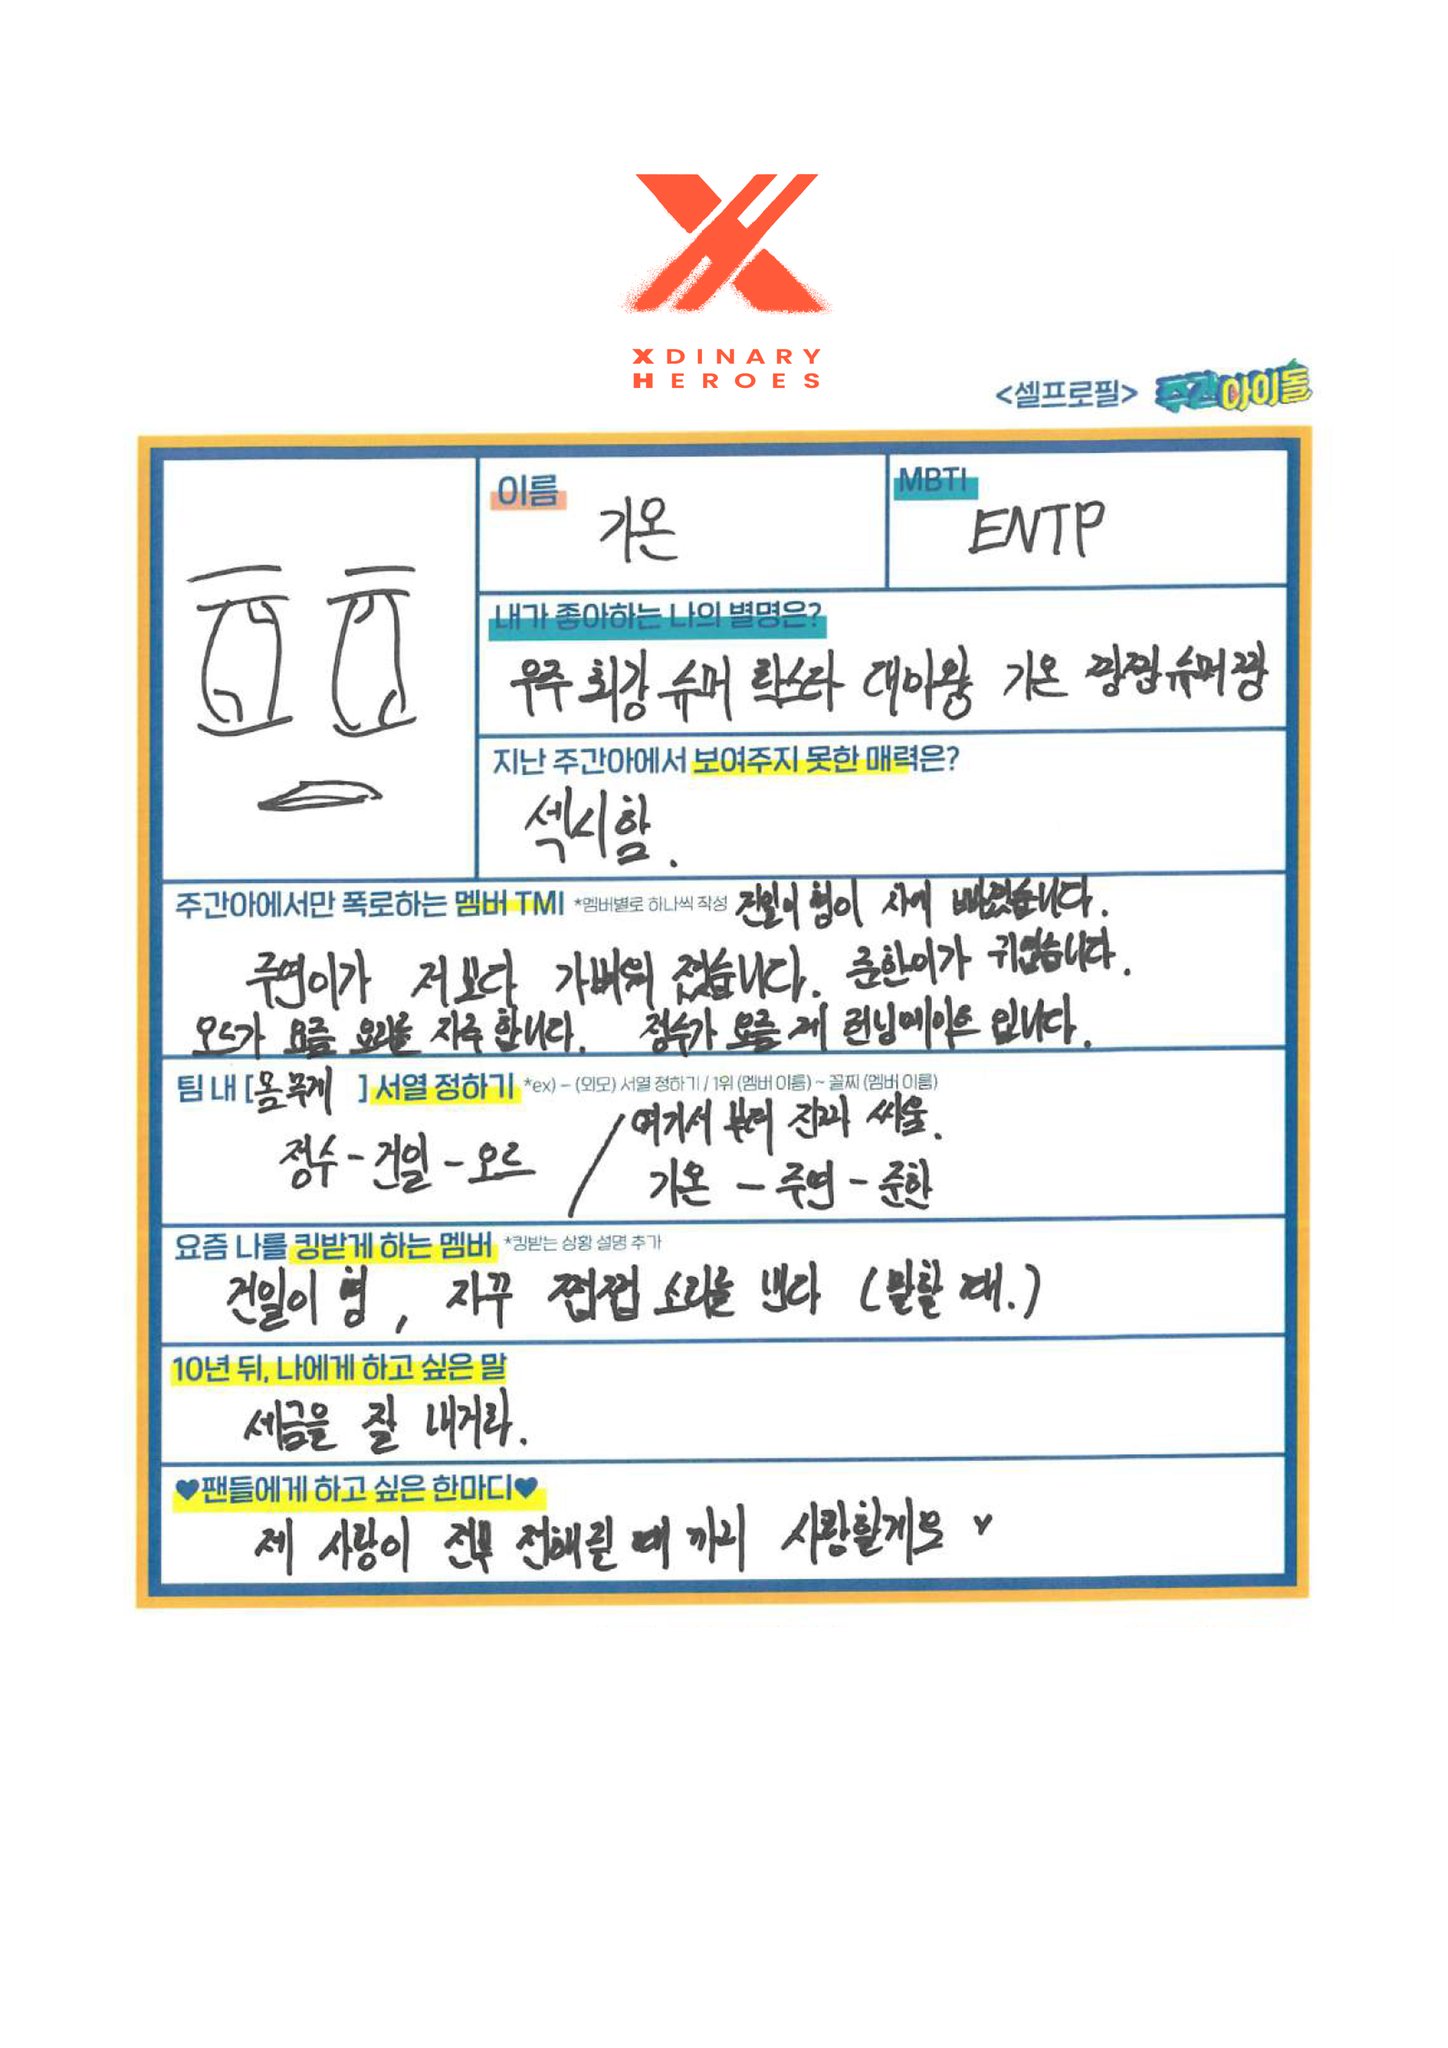 XDINARY
HEROES
<셀프로필> 주간아이돌
이름
가온
MBTI
ENTP
내가 좋아하는 나의 별명은?
우주 최강 슈퍼 락스타 대마왕 가온 짱짱 슈퍼 짱
지난 주간아에서 보여주지 못한 매력은?
섹시함.
주간아에서만 폭로하는 멤버 TMI *멤버별로 하나씩 작성 건일이 형이 차에 빠졌습니다.
주연이가 저보다 가벼워 졌습니다. 준한이가 귀엽습니다.
오드가 요즘 요리를 자주 합니다. 정수가 요즘 제 런닝메이트 입니다.
팀 내 [몸무게 ] 서열 정하기 *ex) - (외모) 서열 정하기 / 1위 (멤버 이름) ~ 꼴찌 (멤버 이름)
정수 - 건일 - 오드 / 여기서 부터 진짜 싸움.
가온 - 주연 - 준한
요즘 나를 킹받게 하는 멤버 *킹받는 상황 설명 추가
건일이 형, 자꾸 쩝쩝 소리를 낸다 (말할 때.)
10년 뒤, 나에게 하고 싶은 말
세금을 잘 내거라.
♥팬들에게 하고 싶은 한마디♥
제 사랑이 전부 전해질 때 까지 사랑할게요 ♥